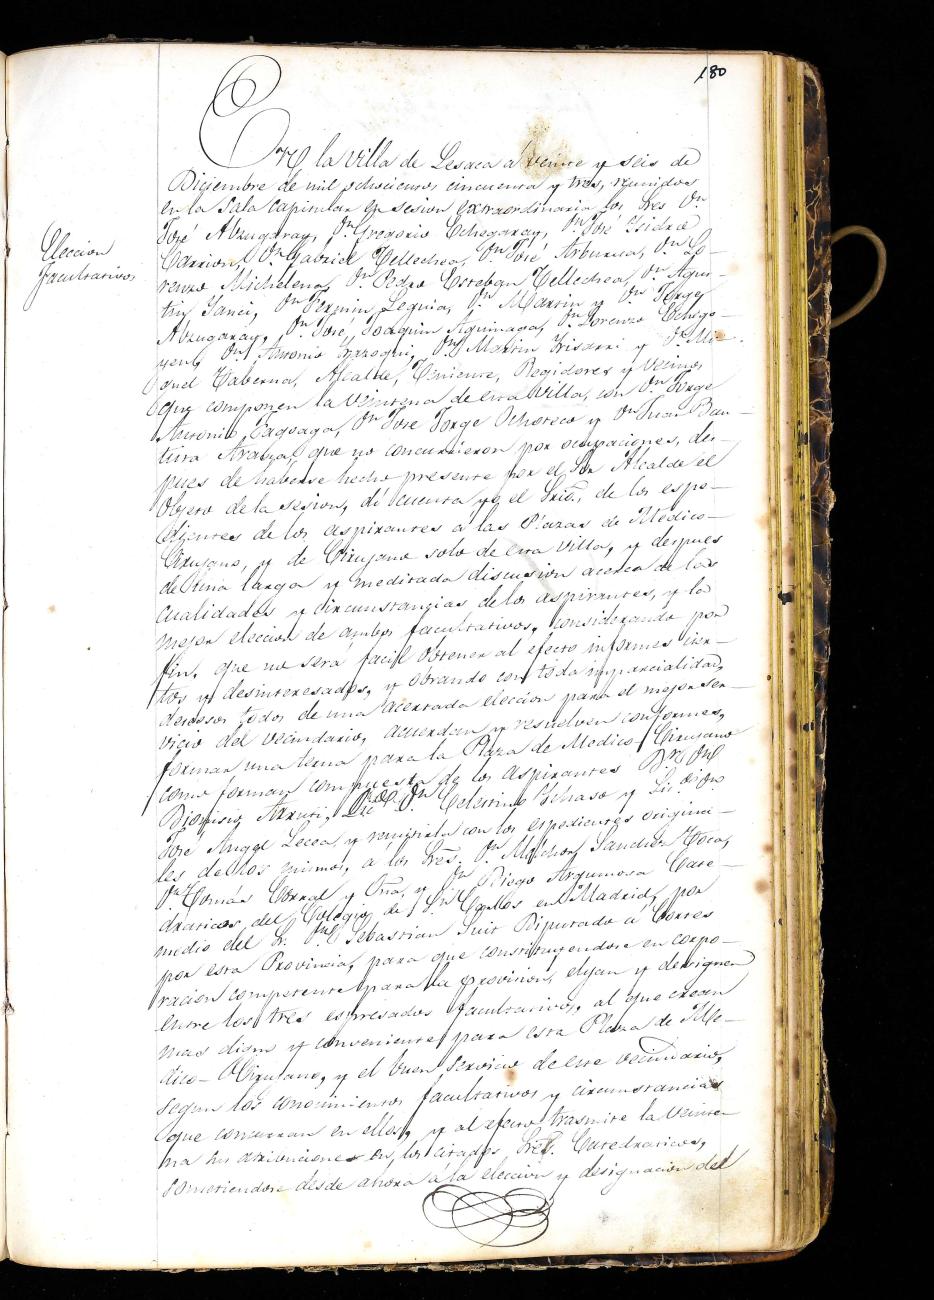 180
Eleccion
facultativos
En la Villa de Lesaca á veinte y seis de
Diciembre de mil ochocientos cincuenta y tres, reunidos
en la sala capitular en sesion extraordinaria los Sres Dn
José Alzugaray, Dn Gregorio Echegaray, Dn José Ysidro
Carrion, Dn Gabriel Tellechea, Dn José Arburua, Dn Lo-
renzo Michelena, Dn Pedro Esteban Tellechea, Dn Agus-
tin Yanci, Dn Fermin Leguia, Dn Martin y Dn Jorge
Alzugaray, Dn José Joaquin Aguinaga, Dn Lorenzo Echigo-
yen, Dn Antonio Yrazoqui, Dn Martin Yrisarri y Dn Mi-
guel Taberna, Alcalde, Teniente, Regidores y Vecinos
que componen la Veintena de esta Villa, con Dn Jorge
Antonio Sagoaga, Dn José Jorge Ochoteco y Dn Juan Bau-
tista Aranza, que no concurrieron por ocupaciones, des-
pues de haberse hecho presente por el Sor Alcalde el
objeto de la sesion, dí cuenta yo el Srio, de los espe-
dientes de los aspirantes á las Plazas de Médico-
Cirujano, y de Cirujano solo de esta Villa, y despues
de una larga y meditada discusion acerca de las
cualidades y circunstancias de los aspirantes, y la
mejor eleccion de ambos facultativos, considerando por
fin, que no será facil obtener al efecto informes cier-
tos y desinteresados, y obrando con toda imparcialidad,
deseosos todos de una acertada eleccion para el mejor ser-
vicio del vecindario, acuerdan y resuelven conformes,
formar una terna para la Plaza de Medico-Cirujano
como forman compuesta de los aspirantes Dr Dn
Dionisio Arruti, Dn Celestino Ychaso y Lic. do Dn
José Angel Lecea y remitirla con los espedientes origina-
les de los mismos, á los Sres. Dn Melchor Sanchez Toca,
Dn Tomás Corral y Oña, y Dn Diego Argumosa Cate-
draticos del Colegio de Sn Carlos en Madrid, por
medio del Sr. Dn Sebastian Diputado á Cortes
por esta Provincia, para que constituyendose en corpo-
racion competente para la provision, elijan y designen
entre los tres espresados facultativos, al que crean
mas digno y conveniente para esta Plaza de Mé-
dico-Cirujano, y el buen servicio de este vecindario,
segun los conocimientos facultativos y circunstancias
que concurran en ellos, y al efecto trasmite la Veinte-
na sus atribuciones en los citados Sres. Catedraticos,
sometiendose desde ahora á la eleccion y designacion del